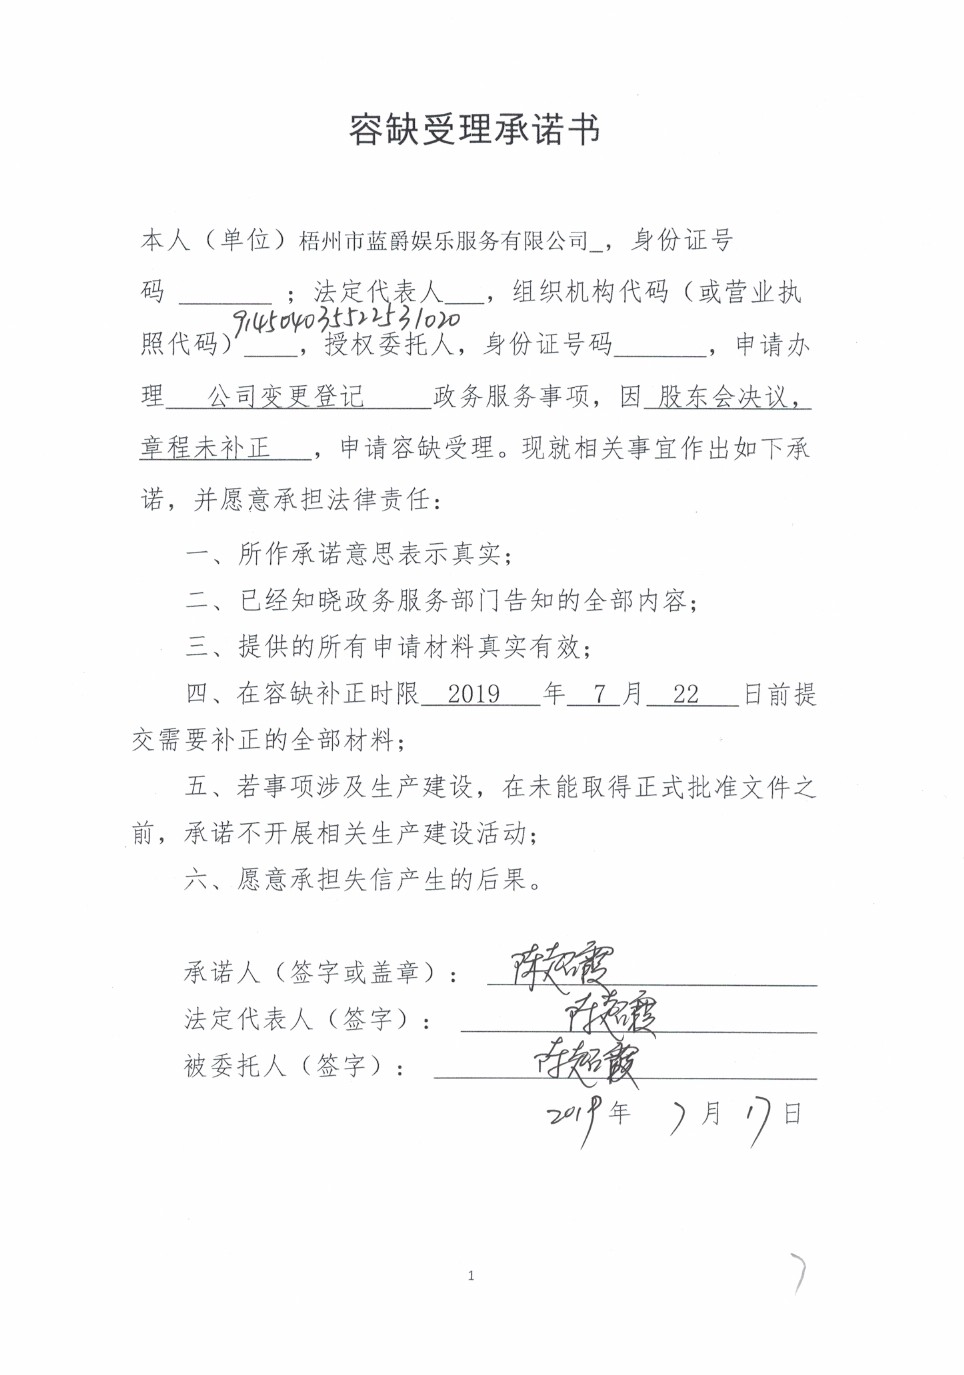 容缺受理承诺书
本人（单位）梧州市蓝爵娱乐服务有限公司_，身份证号
码 _______ ；法定代表人___，组织机构代码（或营业执
914504035522531020
照代码）____，授权委托人，身份证号码_______，申请办
理 公司变更登记 政务服务事项，因 股东会决议，
章程未补正 ，申请容缺受理。现就相关事宜作出如下承
诺，并愿意承担法律责任：
一、所作承诺意思表示真实；
二、已经知晓政务服务部门告知的全部内容；
三、提供的所有申请材料真实有效；
四、在容缺补正时限 2019 年 7 月 22 日前提
交需要补正的全部材料；
五、若事项涉及生产建设，在未能取得正式批准文件之
前，承诺不开展相关生产建设活动；
六、愿意承担失信产生的后果。
承诺人（签字或盖章）： 陈超霞
法定代表人（签字）： 陈超霞
被委托人（签字）： 陈超霞
2019年 7月 17日
1
7